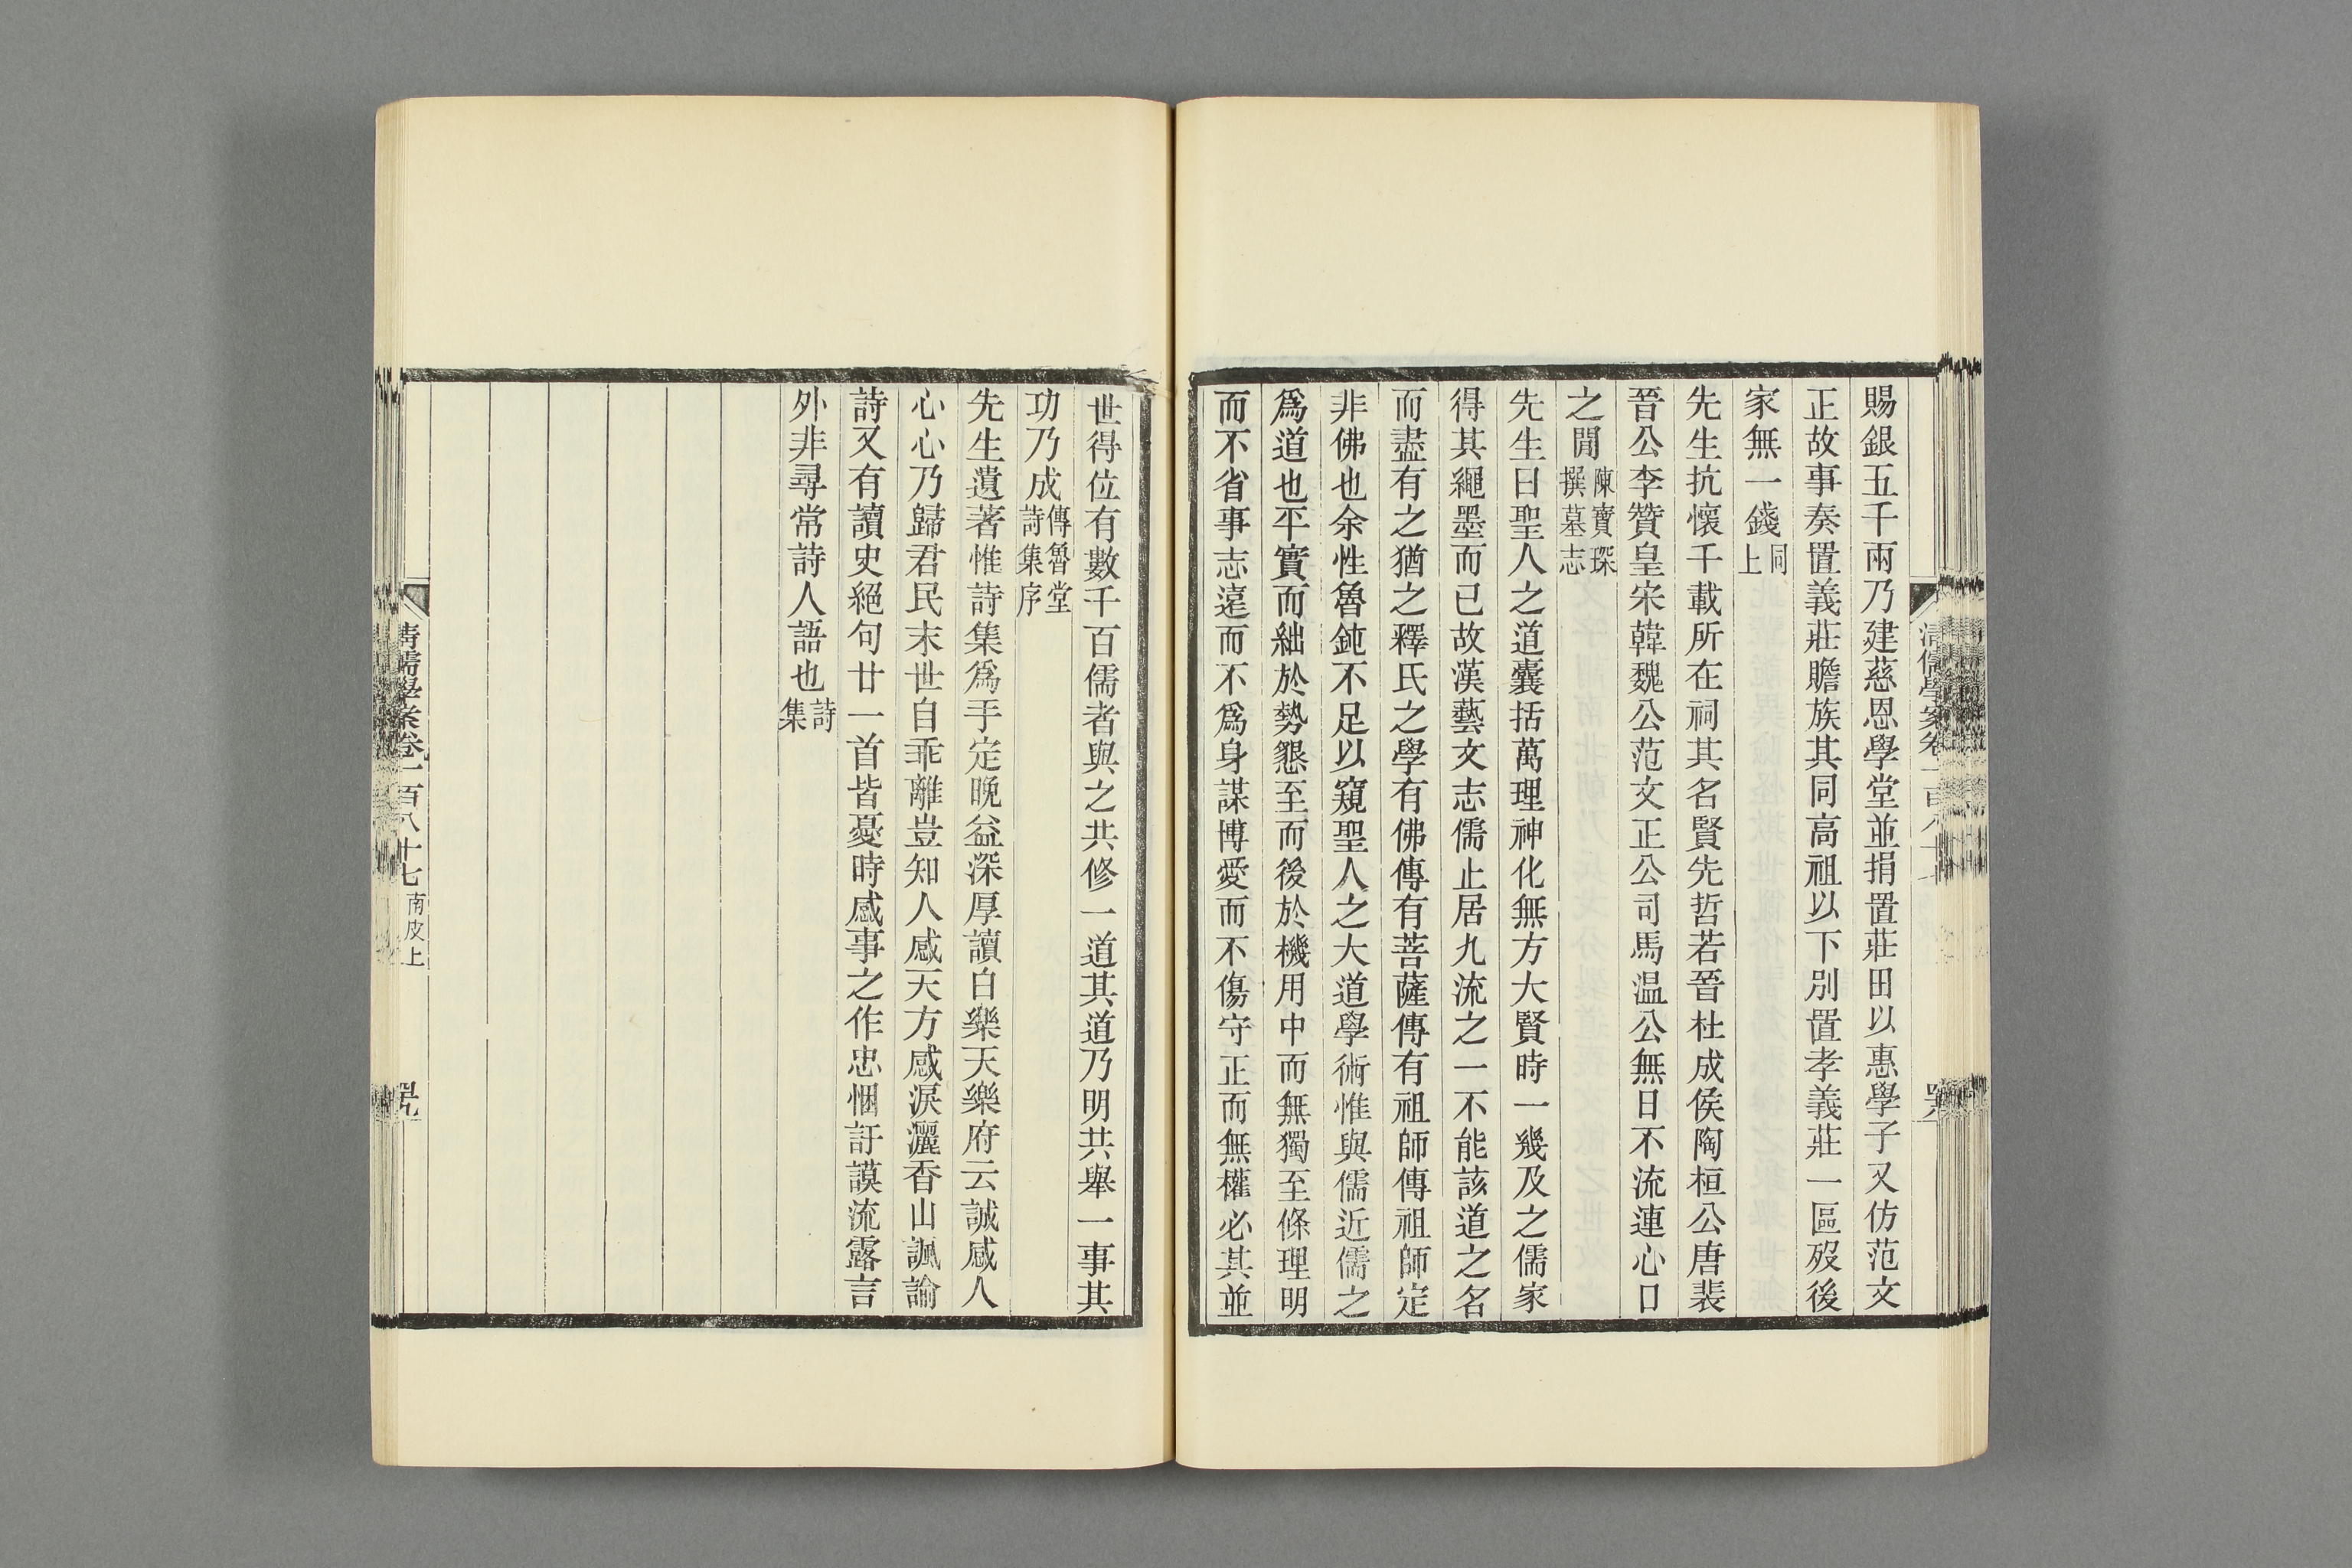 賜銀五千兩乃建慈恩學堂並捐置莊田以惠學子又仿范文
正故事奏置義莊贍族其同高祖以下別置孝義莊一區歿後
家無一錢同上
先生抗懷千載所在祠其名賢先哲若晉杜成侯陶桓公唐裴
晉公李贊皇宋韓魏公范文正公司馬温公無日不流連心口
之閒陳寶琛撰墓志
先生曰聖人之道囊括萬理神化無方大賢時一幾及之儒家
得其繩墨而已故漢藝文志儒止居九流之一不能該道之名
而盡有之猶之釋氏之學有佛傳有菩薩傳有祖師傳祖師定
非佛也余性魯鈍不足以窺聖人之大道學術惟與儒近儒之
爲道也平實而絀於勢懇至而後於機用中而無獨至條理明
而不省事志遠而不爲身謀博愛而不傷守正而無權必其並
世得位有數千百儒者與之共修一道其道乃明共舉一事其
功乃成傳魯堂詩集序
先生遺著惟詩集爲手定晚益深厚讀白樂天樂府云誠感人
心心乃歸君民末世自乖離豈知人感天方感淚灑香山諷諭
詩又有讀史絕句廿一首皆憂時感事之作忠悃訏謨流露言
外非尋常詩人語也詩集
清儒學案卷一百八十七 南皮上